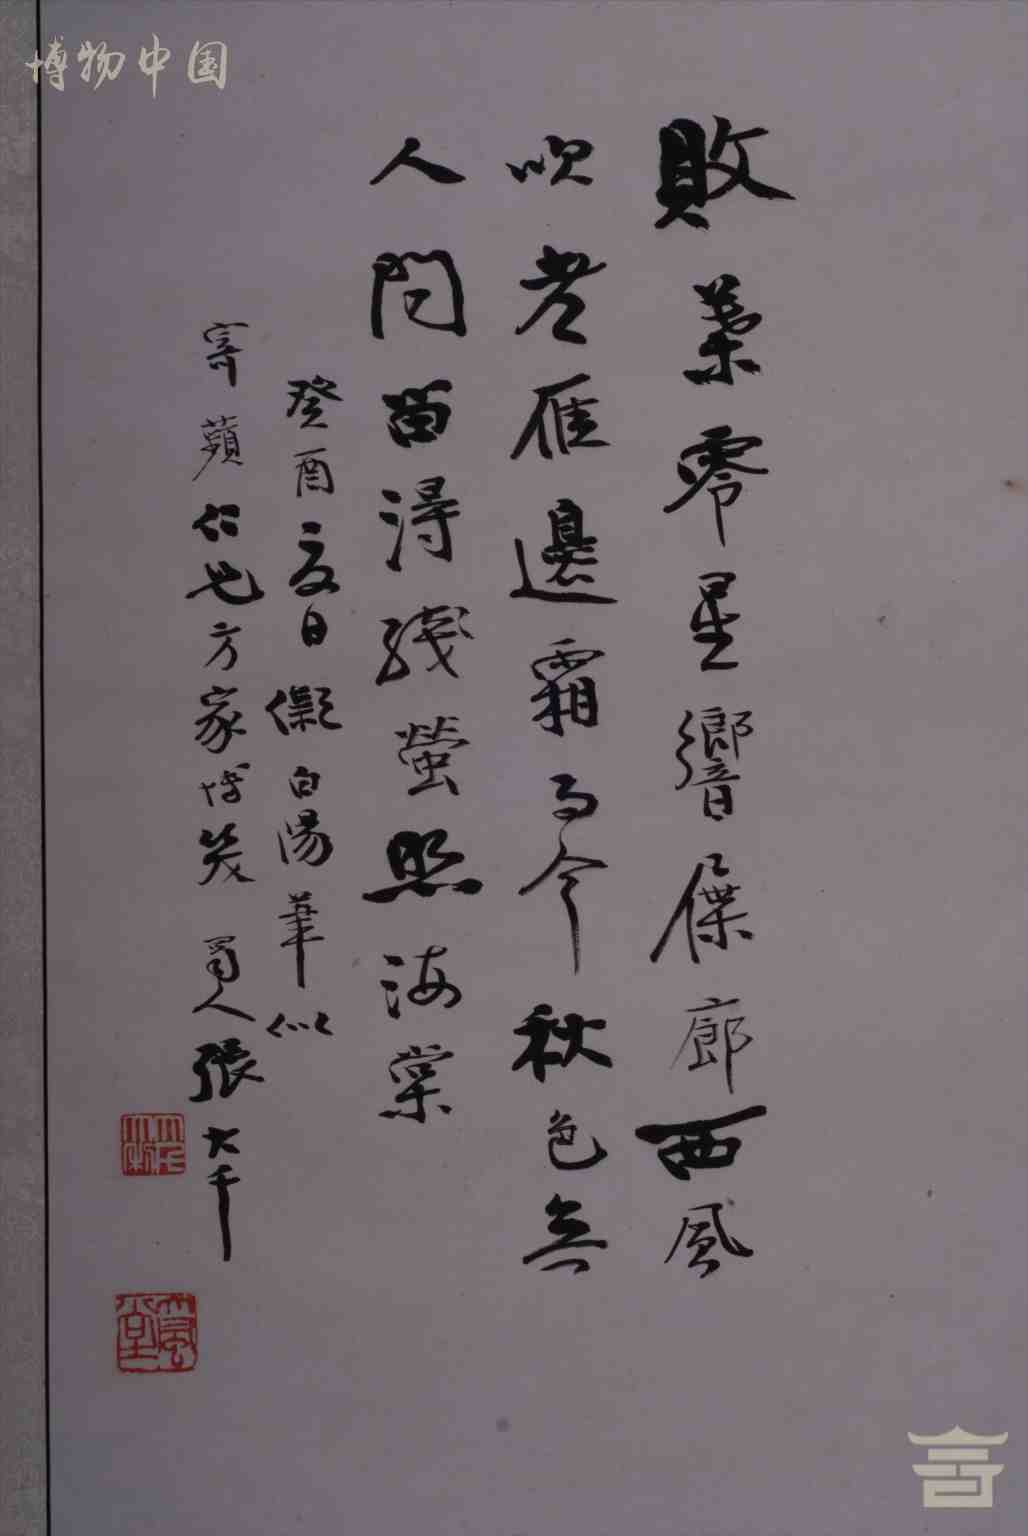 博物中国
敗葉零星響屧廊西風
吹老雁邊霜而今秋色無
人問留得殘螢照海棠
癸酉夏日儗白陽筆似
寄蘋仁兄方家博笑 蜀人張大千